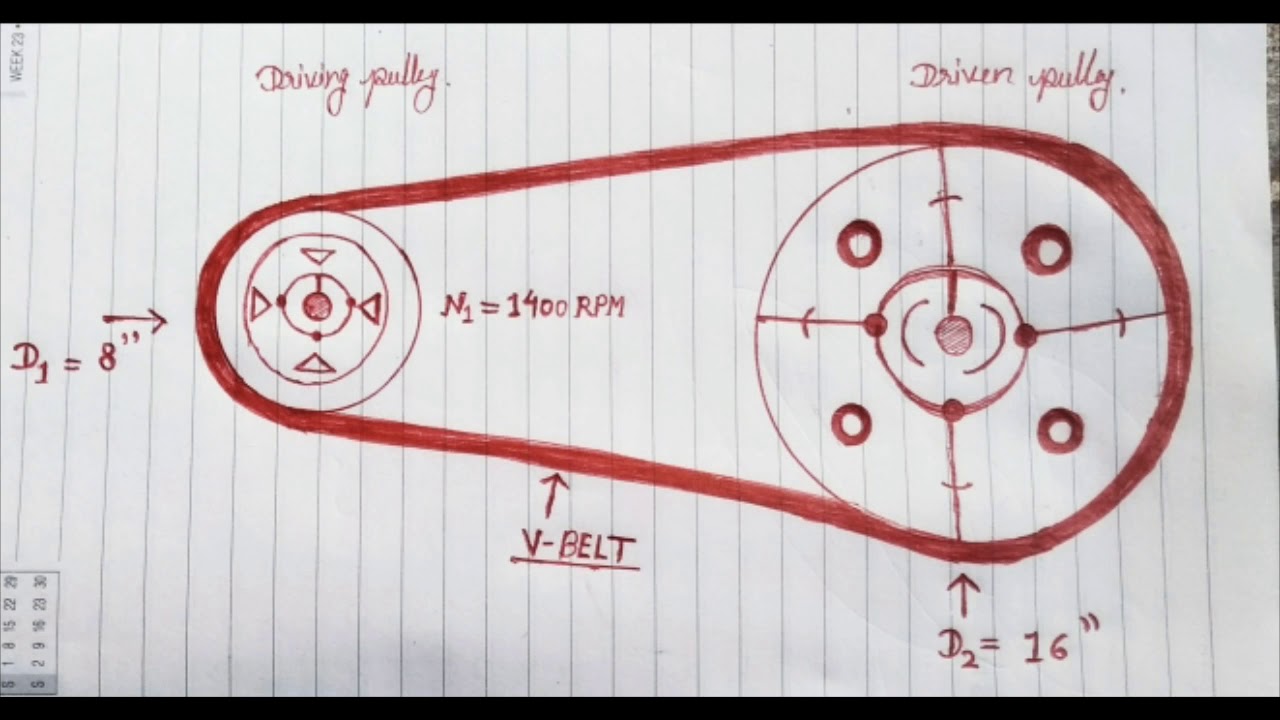 WEEK 23
Driving pulley.
Driven pulley.
N₁ = 1400 RPM
D₁ = 8”
V-BELT
D₂ = 16”
S 1 8 15 22 29
S 2 9 16 23 30